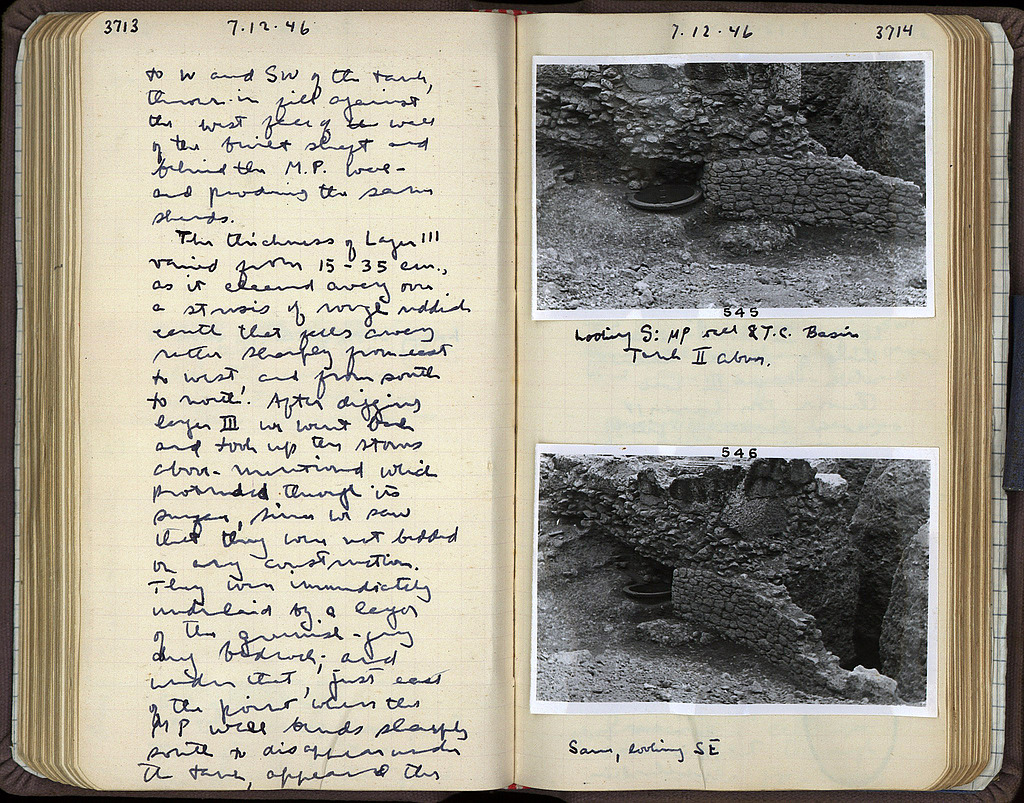 3713
7.12.46
to W and SW of the tank,
thrown in fill against
the west face of the wall
of the built shaft and
behind the M.P. wall -
and producing the same
sherds.
The thickness of Layer III
varied from 15-35 cm.,
as it cleaned away over
a strosis of rough reddish
earth that falls away
rather sharply from east
to west, and from south
to north. After digging
layer III we went back
and took up the stones
above-mentioned which
protruded through its
surface, since we saw
that they were not bedded
on any construction.
They were immediately
underlaid by a layer
of the greenish-grey
clay bedrock; and
under that, just east
of the point where the
MP wall bends sharply
south to disappear under
the tank, appeared the
7.12.46
3714
545
Looking S: MP wall & T.C. Basin
Tank II above.
546
Same, looking SE